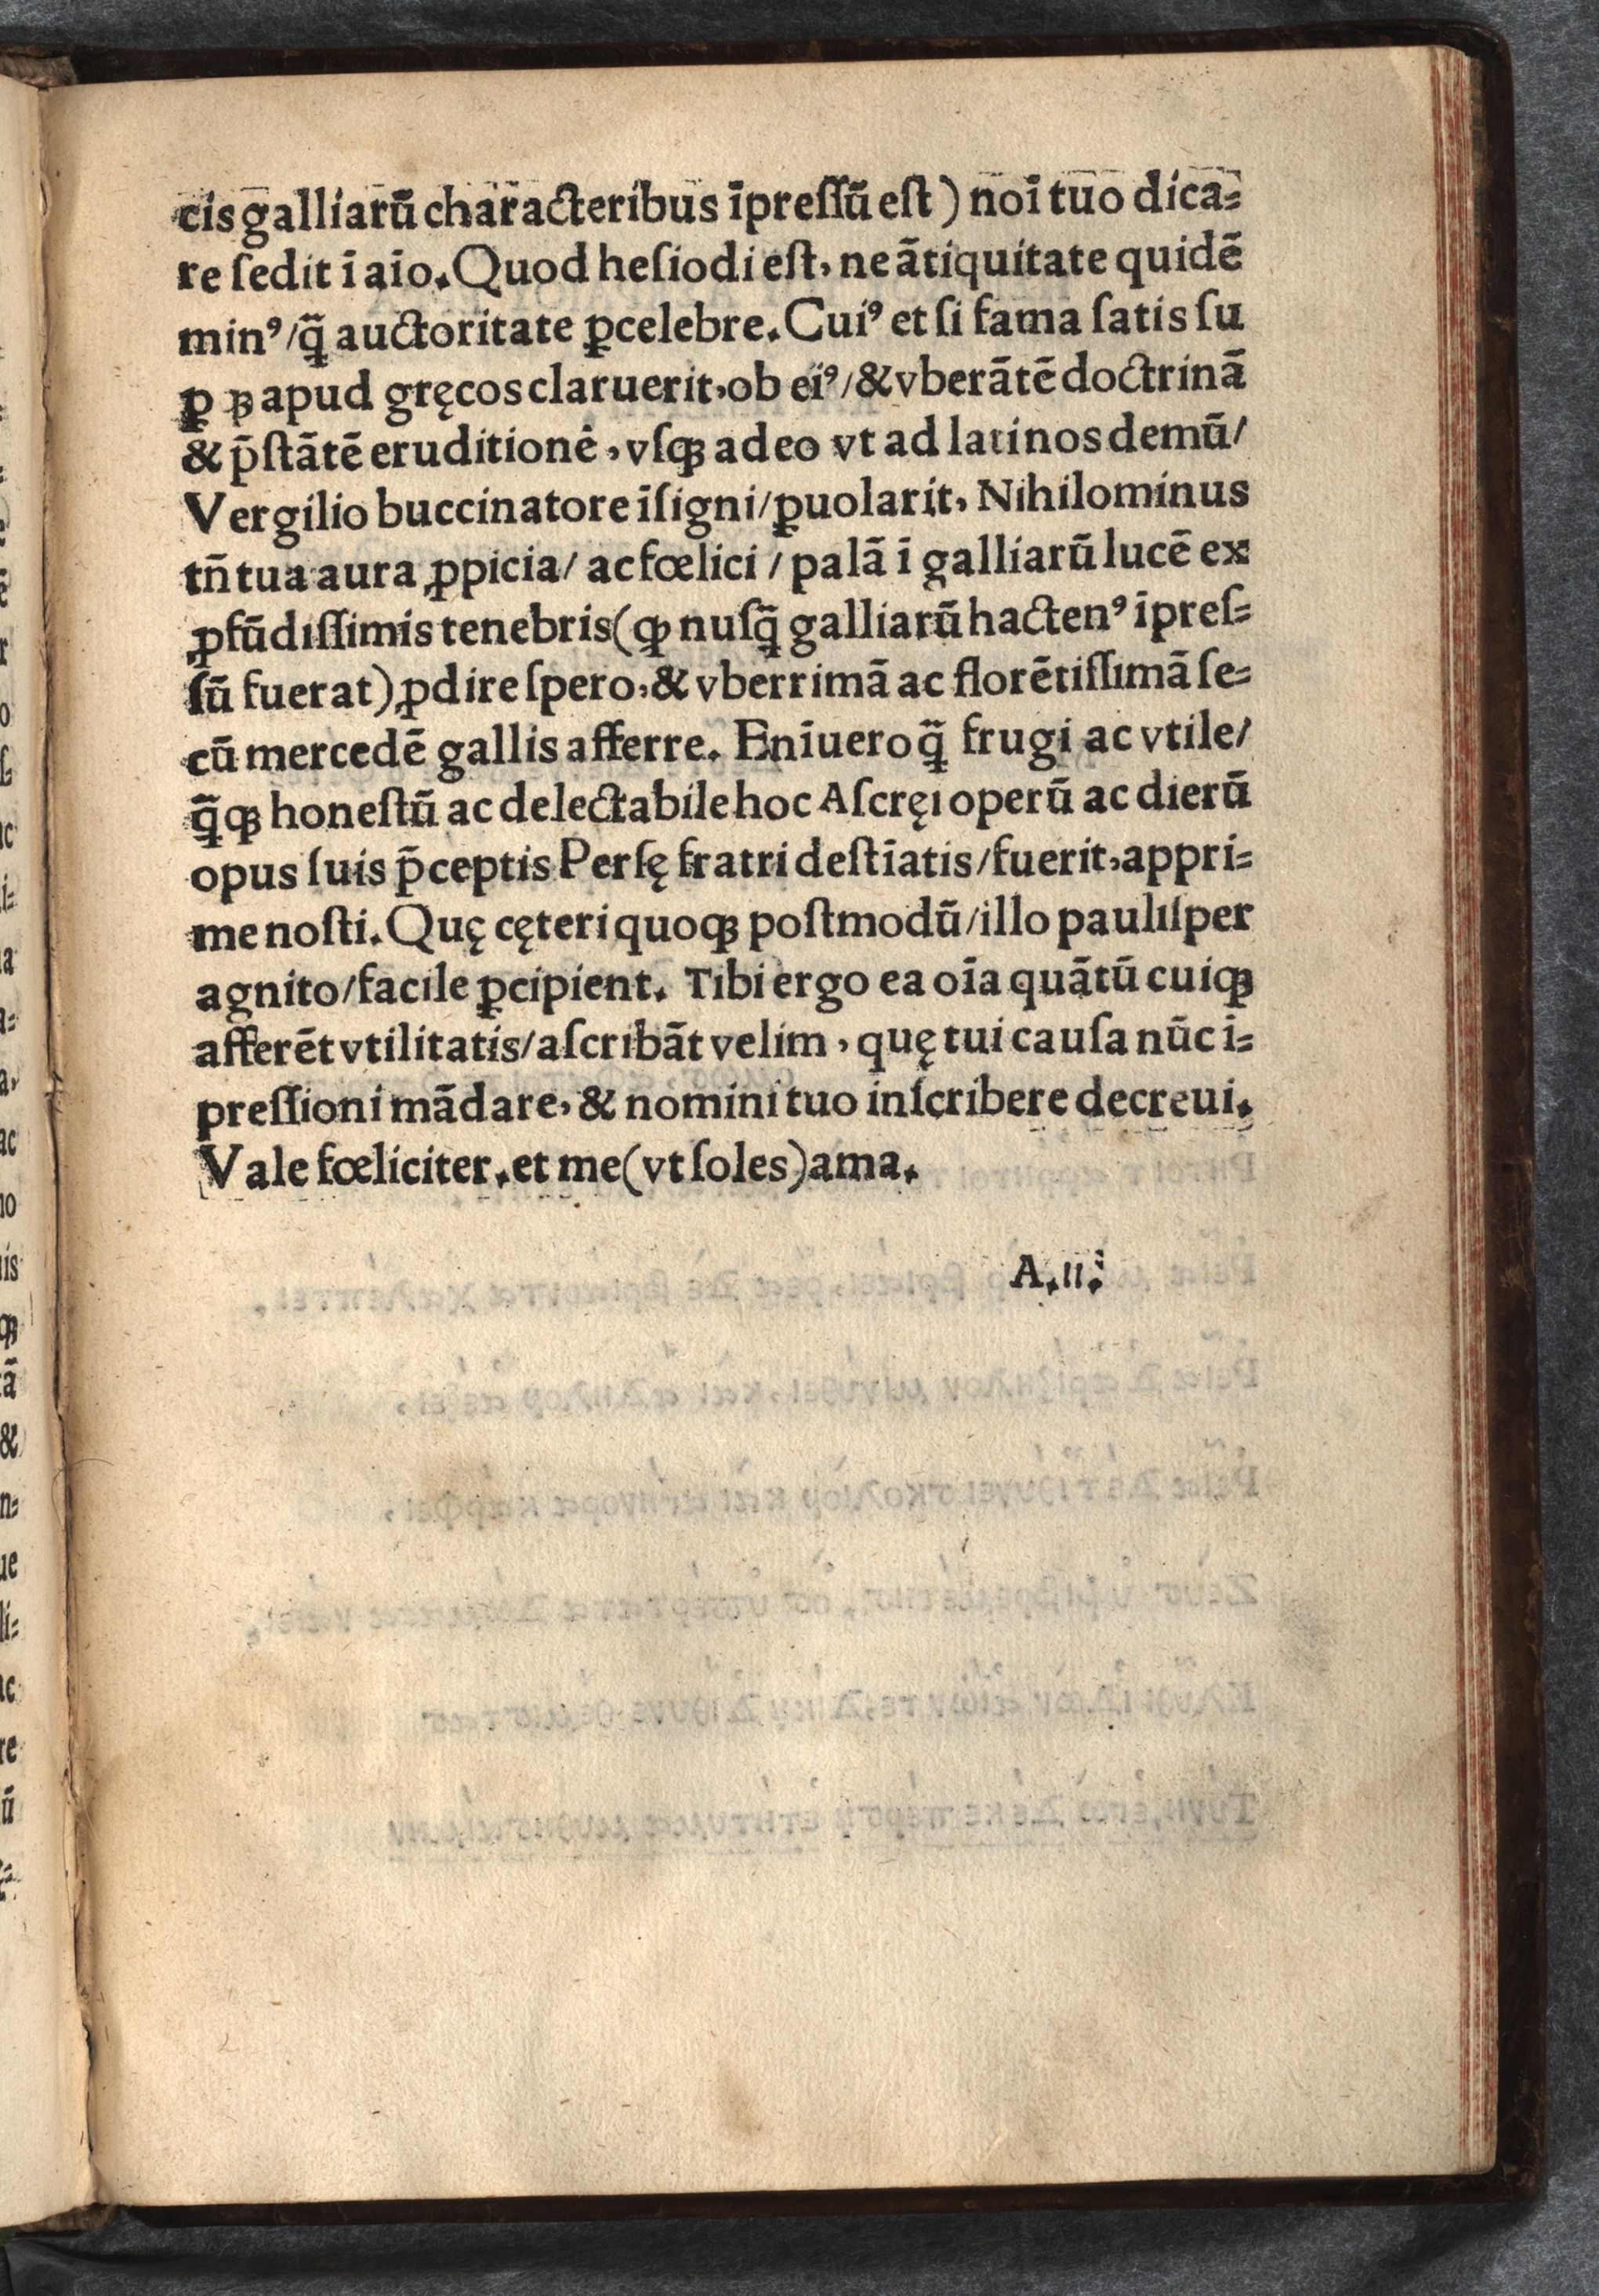 cis galliarū characteribus īpreſſū eſt) noī tuo dica⸗
re ſedit ī aīo. Quod heſiodi eſt, ne ātiquitate quidē
minꝰ/q̄̃ auctoritate ꝑcelebre. Cuiꝰ et ſi fama ſatis ſu
ꝑ ꝑ apud gręcos claruerit, ob eiꝰ/& vberātē doctrinā
& p̄ſtātē eruditionē, vſqꝫ adeo vt ad latinos demū/
Vergilio buccinatore īſigni/ꝑuolarit, Nihilominus
tn̄ tua aura ꝓpicia/ ac fœlici / palā ī galliarū lucē ex
ꝓfūdiſſimis tenebris(ꝙ nuſq̄ galliarū hactenꝰ īpreſ⸗
ſū fuerat)ꝓdire ſpero, & vberrimā ac florētiſſimā ſe⸗
cū mercedē gallis afferre. Enīuero q̄ frugi ac vtile/
q̄qꝫ honeſtū ac delectabile hoc Aſcręi operū ac dierū
opus ſuis p̄ceptis Perſę fratri deſtīatis/fuerit, appri⸗
me noſti. Quę cęteri quoqꝫ poſtmodū/illo pauliſper
agnito/facile ꝑcipient. Tibi ergo ea oīa quātū cuiqꝫ
afferēt vtilitatis/aſcribāt velim, quę tui cauſa nūc i⸗
preſſioni mādare, & nomini tuo inſcribere decreui.
Vale fœliciter. et me(vt ſoles)ama.
A.ii.